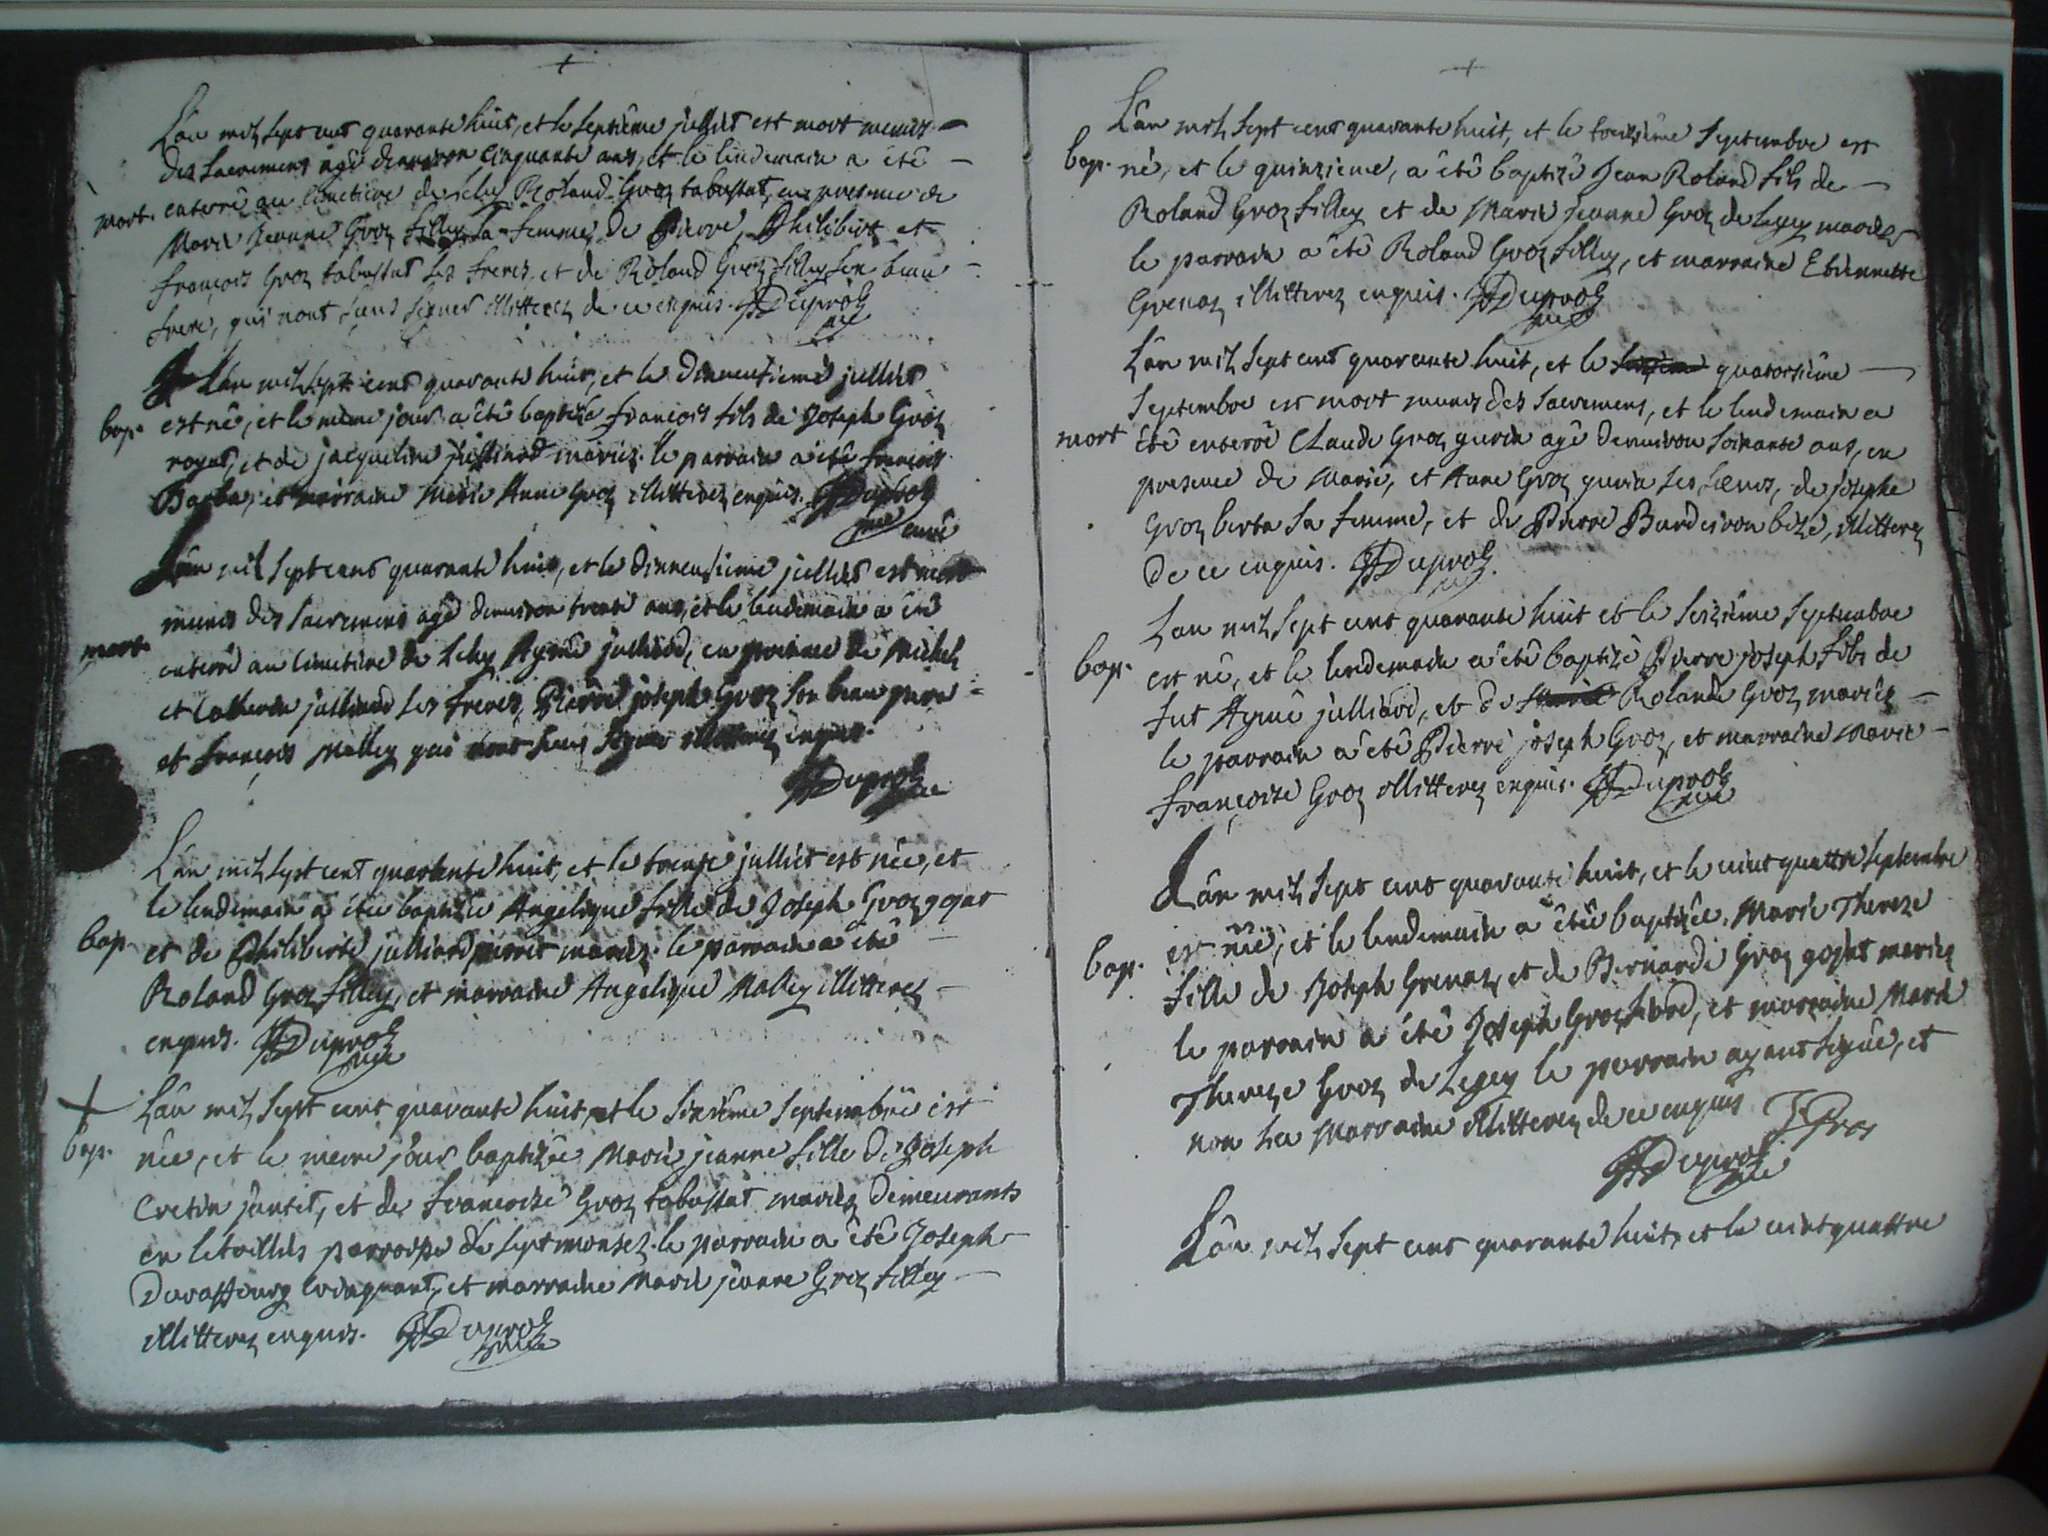 L'an mil sept cent quarante huit, et le septiême julliet est mort munis
des sacremens agé d'environ cinquante ans, et le lendemain a êté
mort. enterré au cimetiere de Roland Groz tabussat, en presence de
Marie Jeanne Groz filley sa femme, de Pierre, Philibert et
françois Groz tabussat ses freres, et de Roland Groz filley son beau
frere, qui n'ont sceus signer illitterez de ce enquis. Duproz
L'an mil sept cent quarante huit, et le dixneufieme julliet
bap. est né, et le même jour a êté baptizé françois fils de Joseph Groz
et de jacqueline mariez. le parrain a êté françois
et marraine Marie Anne Groz illitterez enquis. Duproz
curé
L'an mil sept cent quarante huit, et le dixneufieme julliet est mort
munis des sacremens agé d'environ trente ans, et le lendemain a êté
mort. enterré au cimetiere de Aymé julliard, en presence de Michel
et julliard ses freres, Pierre joseph Groz son beau pere
et françois Malley qui n'ont sceus signer illitterez enquis.
Duproz
L'an mil sept cent quarante huit, et le trente julliet est née, et
le lendemain a êtée baptizée Angelique fille de Joseph Groz gojat
bap. et de Philiberte julliard mariez. le parrain a êté
Roland Groz filley, et marraine Angelique Malley illitterez
enquis. Duproz
L'an mil sept cent quarante huit, et le sixiême septembre est
bap. née, et le meme jour baptizée Marie jeanne fille de Joseph
Cretin jantet, et de francoise Groz tabussat mariez demeurants
en parroisse de septmonsel. le parrain a êté Joseph
et marraine Marie jeanne Groz filley
illitterez enquis. Duproz
L'an mil sept cent quarante huit, et le treizième septembre est
bap. né, et le quinzieme, a êté baptizé Jean Roland fils de
Roland Groz filley et de Marie Jeanne Groz de Legey mariez
le parrain a êté Roland Groz filley, et marraine Etiennette
Grenaz illitterez enquis. Duproz
L'an mil sept cent quarante huit, et le quatorsiême
septembre est mort munis des sacremens, et le lendemain a
mort êté enterré Claude Groz gurin agé d'environ soixante ans, en
presence de Marie, et Anne Groz gurin ses soeurs, de josephe
Groz berta sa femme, et de Pierre illitterez
de ce enquis. Duproz
L'an mil sept cent quarante huit et le seizième septembre
bap. est né, et le lendemain a êté baptizé Pierre joseph fils de
fut Aymé julliard, et de Rolande Groz mariez
le parrain a êté Pierre joseph Groz, et marraine Marie
françoise Groz illitterez enquis. Duproz
L'an mil sept cent quarante huit, et le vint quattre septembre
est née, et le lendemain a êtée baptizée. Marie Thereze
bap. fille de Joseph Grenaz, et de Bernarde Groz gojat mariez
le parrain a êté Joseph Groz et marraine Marie
Thereze Groz de Legey le parrain ayant signé, et
non la marraine illitterez de ce enquis J Gros
Duproz
L'an mil sept cent quarante huit, et le vint quattre